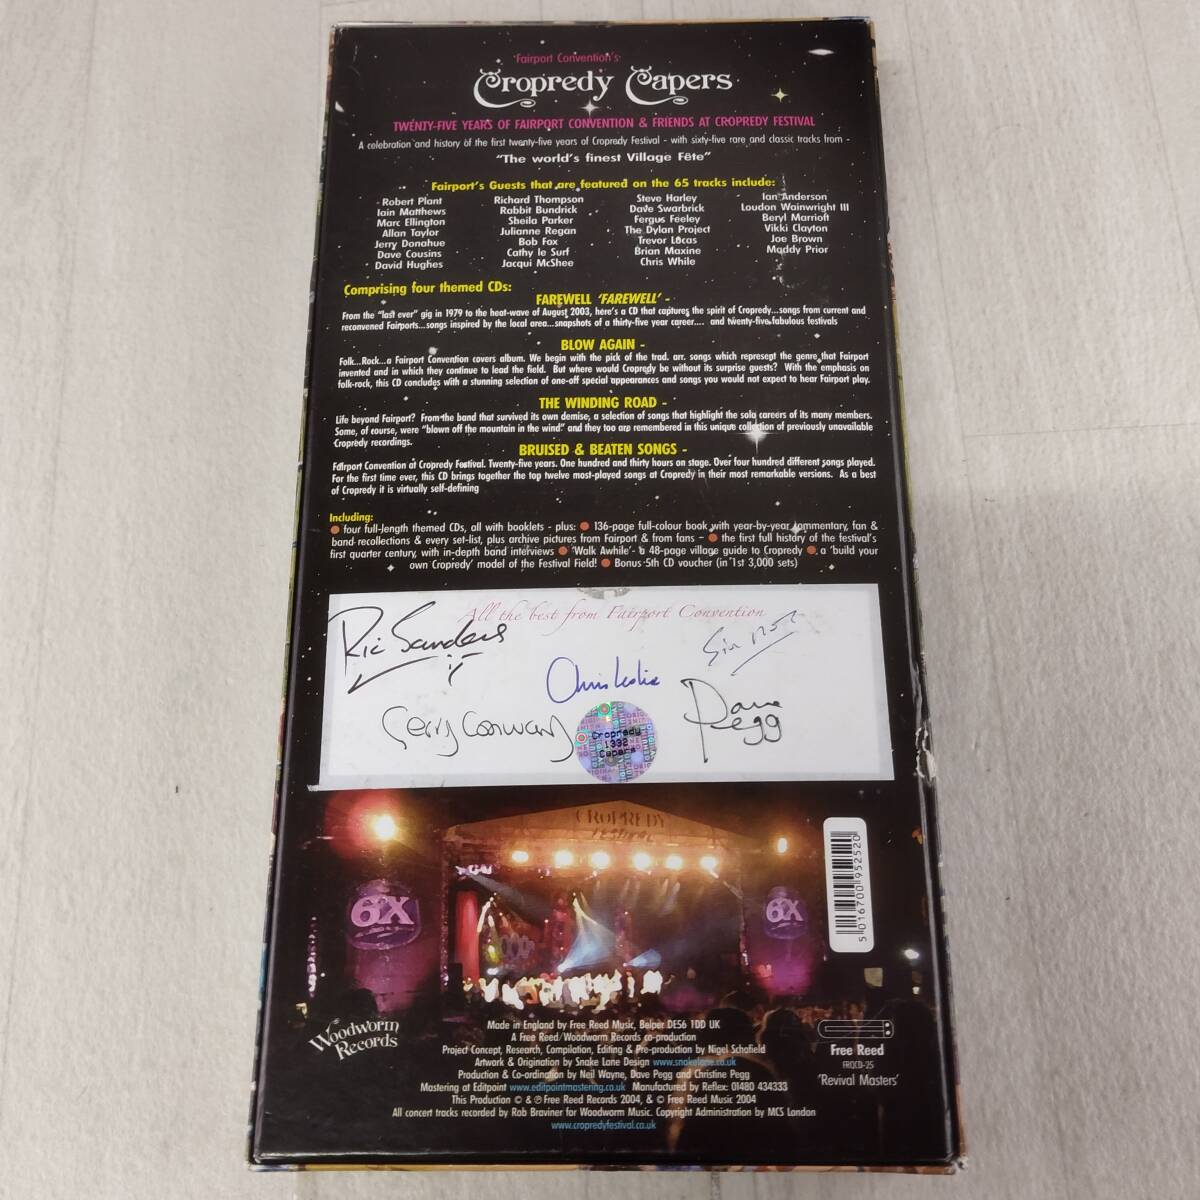 Fairport Convention's
Cropredy Capers
TWENTY-FIVE YEARS OF FAIRPORT CONVENTION & FRIENDS AT CROPREDY FESTIVAL
A celebration and history of the first twenty-five years of Cropredy Festival - with sixty-five rare and classic tracks from -
"The world's finest Village Fête"
Fairport's Guests that are featured on the 65 tracks include:
Robert Plant
Iain Matthews
Marc Ellington
Allan Taylor
Jerry Donahue
Dave Cousins
David Hughes
Richard Thompson
Rabbit Bundrick
Sheila Parker
Julianne Regan
Bob Fox
Cathy le Surf
Jacqui McShee
Steve Harley
Dave Swarbrick
Fergus Feeley
The Dylan Project
Trevor Lucas
Brian Maxine
Chris While
Ian Anderson
Loudon Wainwright III
Beryl Marriott
Vikki Clayton
Joe Brown
Maddy Prior
Comprising four themed CDs:
FAREWELL 'FAREWELL' -
From the "last ever" gig in 1979 to the heat-wave of August 2003, here's a CD that captures the spirit of Cropredy...songs from current and
reconvened Fairports...songs inspired by the local area...snapshots of a thirty-five year career.... and twenty-five fabulous festivals
BLOW AGAIN -
Folk...Rock...a Fairport Convention covers album. We begin with the pick of the trad. arr. songs which represent the genre that Fairport
invented and in which they continue to lead the field. But where would Cropredy be without its surprise guests? With the emphasis on
folk-rock, this CD concludes with a stunning selection of one-off special appearances and songs you would not expect to hear Fairport play.
THE WINDING ROAD -
Life beyond Fairport? From the band that survived its own demise, a selection of songs that highlight the solo careers of its many members.
Some, of course, were "blown off the mountain in the wind" and they too are remembered in this unique collection of previously unavailable
Cropredy recordings.
BRUISED & BEATEN SONGS -
Fairport Convention at Cropredy Festival. Twenty-five years. One hundred and thirty hours on stage. Over four hundred different songs played.
For the first time ever, this CD brings together the top twelve most-played songs at Cropredy in their most remarkable versions. As a best
of Cropredy it is virtually self-defining
Including:
● four full-length themed CDs, all with booklets - plus: ● 136-page full-colour book with year-by-year commentary, fan &
band recollections & every set-list, plus archive pictures from Fairport & from fans - ● the first full history of the festival's
first quarter century, with in-depth band interviews ● 'Walk Awhile'- a 48-page village guide to Cropredy ● a 'build your
own Cropredy' model of the Festival Field! ● Bonus 5th CD voucher (in 1st 3,000 sets)
All the best from Fairport Convention
Ric Sanders
Chris Leslie
Gerry Conway
Dave
Pegg
Cropredy
1392
Capers
CROPREDY
FESTIVAL
6X
6X
5 016700 952520
Woodworm
Records
Made in England by Free Reed Music, Belper DE56 1DD UK
A Free Reed/Woodworm Records co-production
Project Concept, Research, Compilation, Editing & Pre-production by Nigel Schofield
Artwork & Origination by Snake Lane Design www.snakelane.co.uk
Production & Co-ordination by Neil Wayne, Dave Pegg and Christine Pegg
Mastering at Editpoint www.editpointmastering.co.uk Manufactured by Reflex: 01480 434333
This Production © & ℗ Free Reed Records 2004, & © Free Reed Music 2004
All concert tracks recorded by Rob Braviner for Woodworm Music. Copyright Administration by MCS London
www.cropredyfestival.co.uk
Free Reed
FRQCD-25
'Revival Masters'